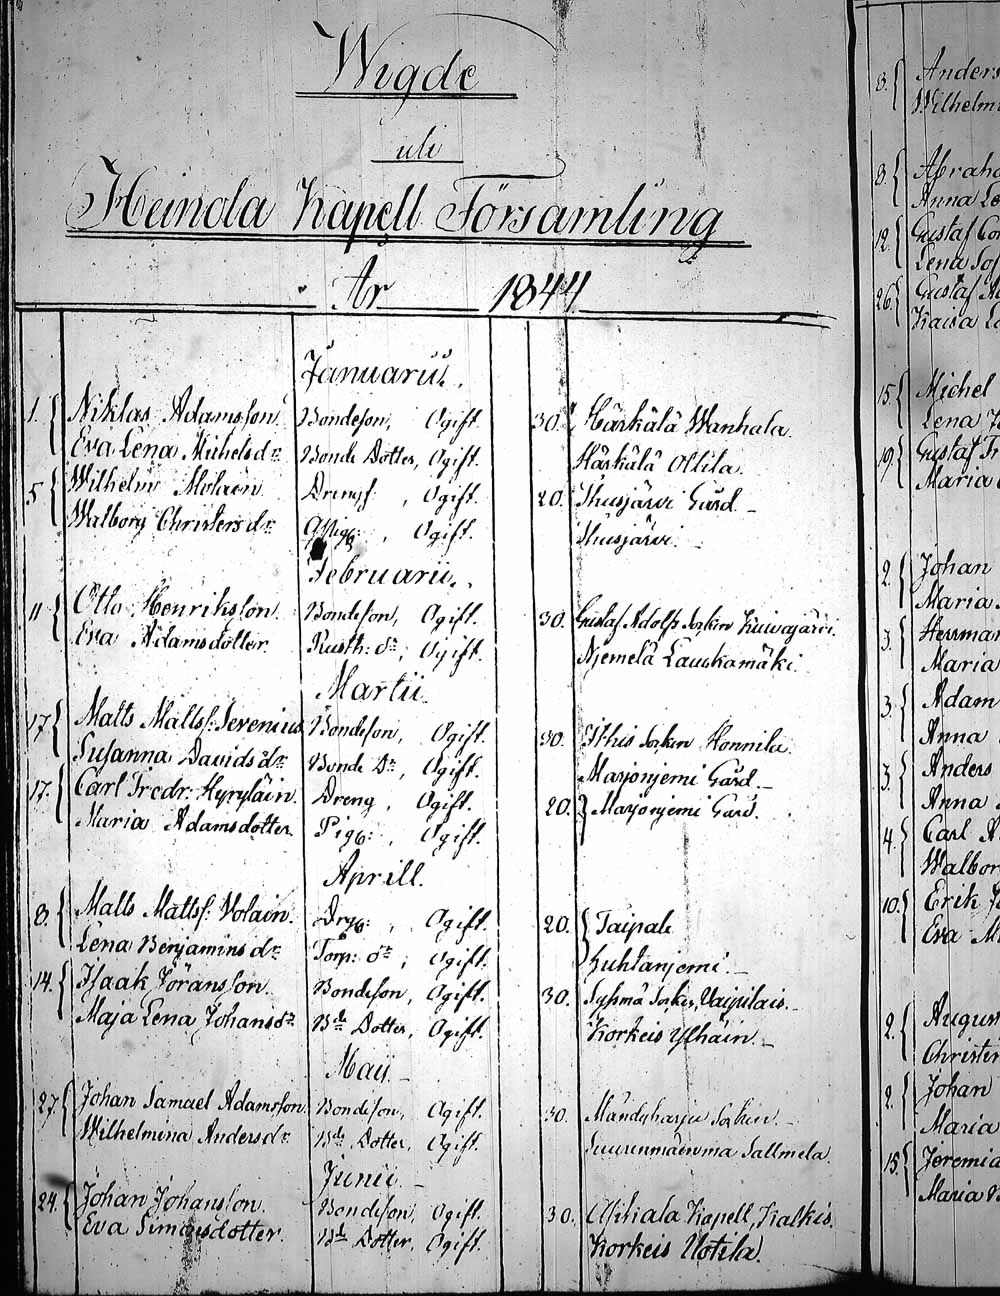 Wigde
uti
Heinola Kapell Församling
År 1844
Januarii.
1. Niklas Adamsson Bondeson, Ogift. 30. Härkälä Wanhala.
Eva Lena Michelsdr Bonde Dotter, Ogift. Härkälä Ollila.
5 Wilhelm Molain Drengs. , Ogift. 20. Ihusjärvi Gård.
Walborg Christersdr Pig: , Ogift. Ihusjärvi.
Februarii.
11 Otto Henriksson Bondeson, Ogift. 30. Gustaf Adolfs Sokn
Eva Adamsdotter Rusth: dr, Ogift. Njemelä Lauskamäki.
Martii
17 Matts Matts: Serenius Bondeson, Ogift. 30. Sokn Honnila.
Susanna Davidsdr Bonde Dr, Ogift. Marjonjemi Gård.
17. Carl Fredr: Hyryläin. Dreng, Ogift. 20. Marjonjemi Gård.
Maria Adamsdotter Pig: , Ogift.
Aprill.
8. Matts Matts: Volain. Drg: , Ogift. 20. Taipale
Lena Benjaminsdr Torp: dr, Ogift. Kuhlanjemi.
14. Isaak Jöransson. Bondeson, Ogift. 30. Sysmä Sokn,
Maja Lena Johansdr Bde Dotter, Ogift. Korkeis Ylhäin.
Maij
27. Johan Samuel Adamsson. Bondeson, Ogift. 30. Mändyharju Sokn.
Wilhelmina Andersdr Bde Dotter, Ogift. Sallmela.
Junii
24. Johan Johansson. Bondeson, Ogift. 30. Kapell, Kalkis.
Eva Simonsdotter. Bde Dotter, Ogift. Korkeis Uotila.
8. Anders
Wilhelm
8. Abraha
Anna Le
12 Gustaf
Lena Sof
26. Gustaf
Kaisa
15 Michel
Lena
19. Gustaf
Maria
2. Johan
Maria
3. Herrman
Maria
3. Adam
Anna
3. Anders
Anna
4. Carl
Walbor
10. Erik
Eva
2. August
Christin
2. Johan
Maria
15 Jeremia
Maria